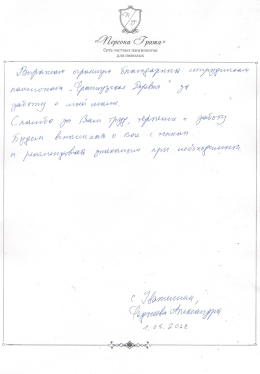 «Персона Гранта»
Сеть частных пансионатов
для пожилых
Выражаем огромную благодарность сотрудникам
пансионата "Французская Деревня" за
заботу о моей маме.
Спасибо за Ваш труд, терпение и заботу
Будем вспоминать о Вас с
и рекомендовать знакомым при необходимости
с Уважением,
Александра